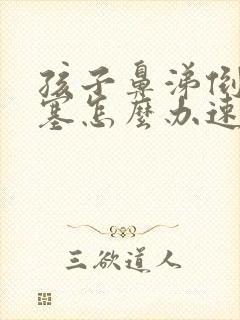 孩子鼻涕倒
塞怎麼办速
三欲道人